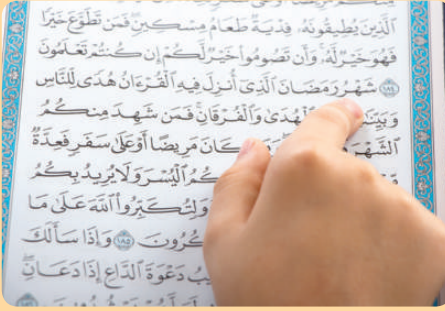 ٱلَّذِينَ يُطِيقُونَهُۥ فِدْيَةٌ طَعَامُ مِسْكِينٍ فَمَن تَطَوَّعَ خَيْرًا
فَهُوَ خَيْرٌ لَّهُۥ وَأَن تَصُومُوا۟ خَيْرٌ لَّكُمْ إِن كُنتُمْ تَعْلَمُونَ
١٨٤ شَهْرُ رَمَضَانَ ٱلَّذِىٓ أُنزِلَ فِيهِ ٱلْقُرْءَانُ هُدًى لِّلنَّاسِ
ٱلْهُدَىٰ وَٱلْفُرْقَانِ فَمَن شَهِدَ مِنكُمُ
ٱلشَّهْرَ كَانَ مَرِيضًا أَوْ عَلَىٰ سَفَرٍ فَعِدَّةٌ
ٱلْيُسْرَ وَلَا يُرِيدُ بِكُمُ
وَلِتُكَبِّرُوا۟ ٱللَّهَ عَلَىٰ مَا
١٨٥ وَإِذَا سَأَلَكَ
دَعْوَةَ ٱلدَّاعِ إِذَا دَعَانِ